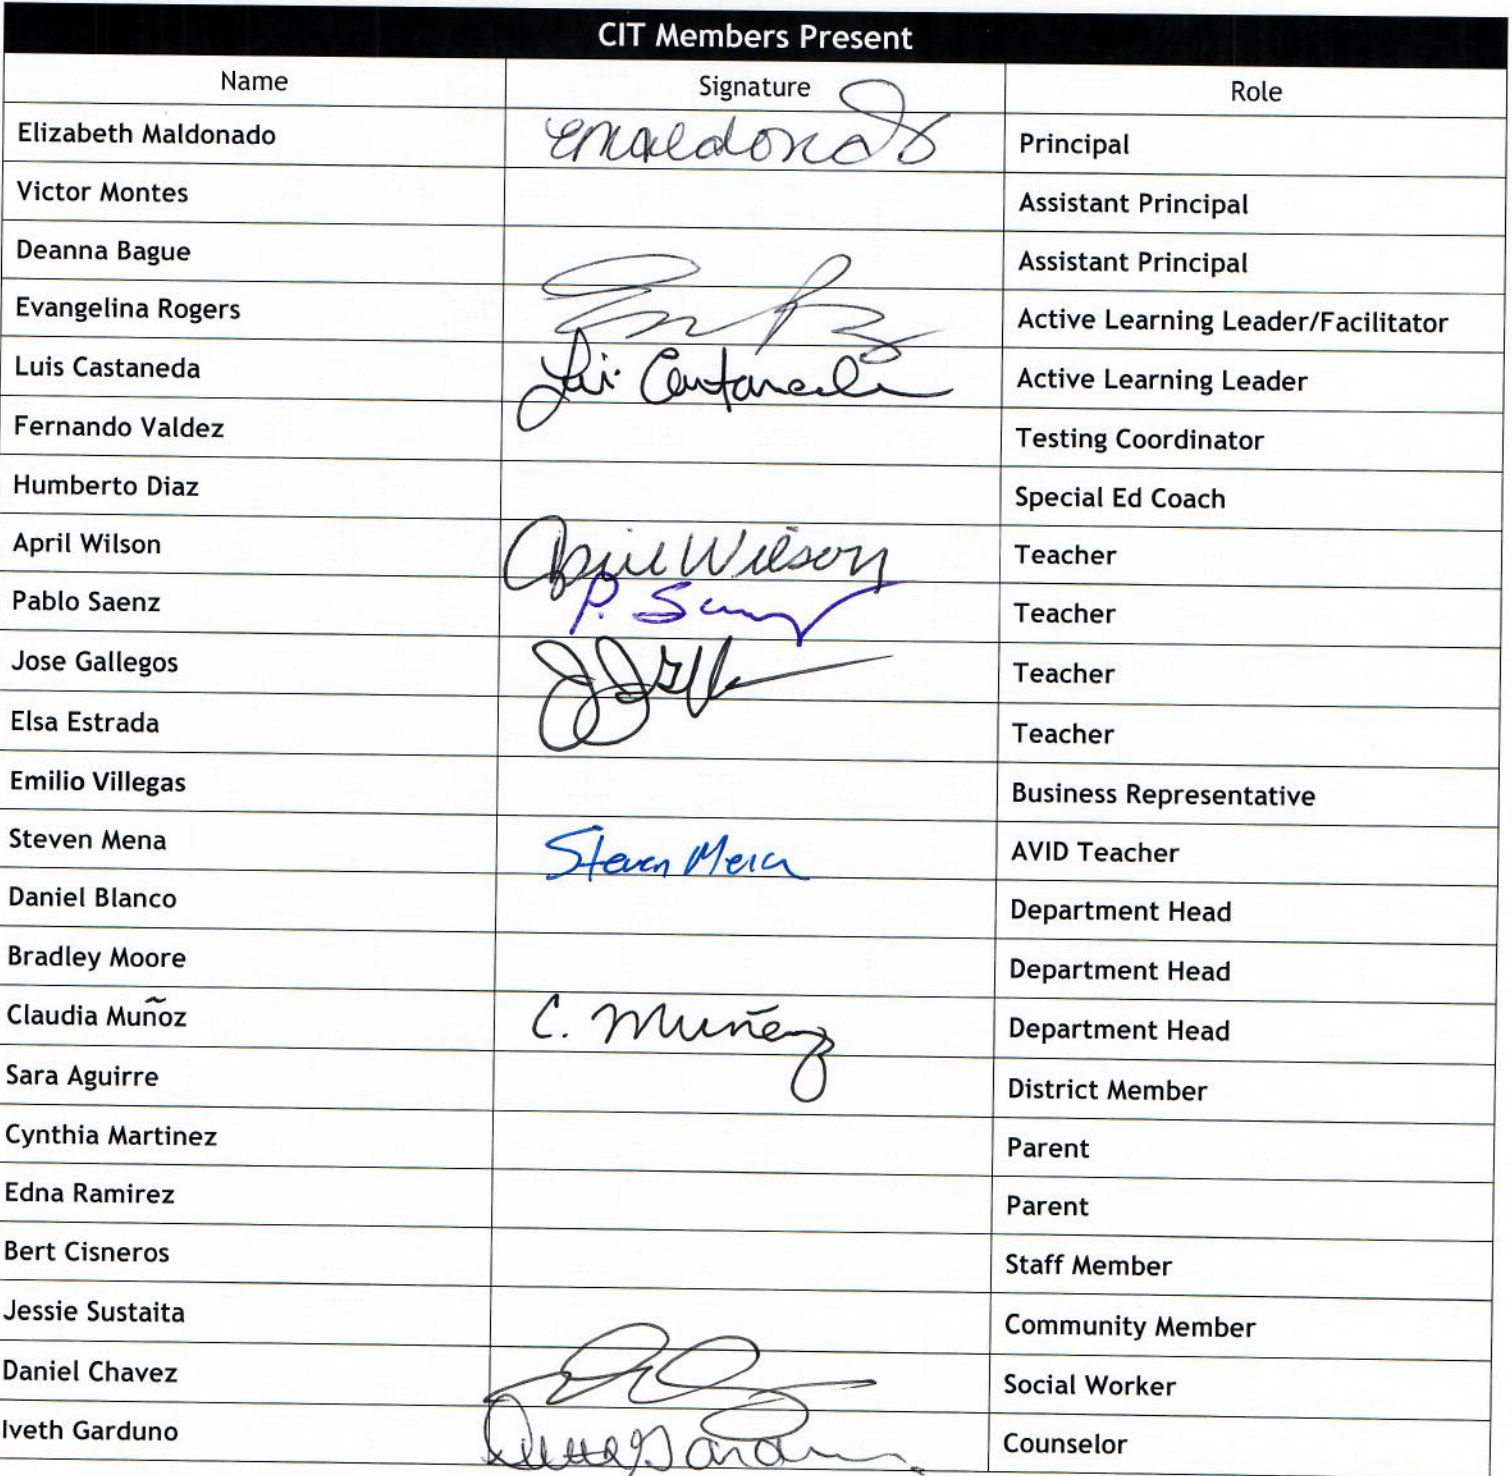 CIT Members Present
Name Signature Role
Elizabeth Maldonado EMaldonado Principal
Victor Montes Assistant Principal
Deanna Bague Assistant Principal
Evangelina Rogers Active Learning Leader/Facilitator
Luis Castaneda Active Learning Leader
Fernando Valdez Testing Coordinator
Humberto Diaz Special Ed Coach
April Wilson April Wilson Teacher
Pablo Saenz P. Teacher
Jose Gallegos Teacher
Elsa Estrada Teacher
Emilio Villegas Business Representative
Steven Mena Steven Mena AVID Teacher
Daniel Blanco Department Head
Bradley Moore Department Head
Claudia Muñoz C. Muñoz Department Head
Sara Aguirre District Member
Cynthia Martinez Parent
Edna Ramirez Parent
Bert Cisneros Staff Member
Jessie Sustaita Community Member
Daniel Chavez Social Worker
Iveth Garduno Counselor